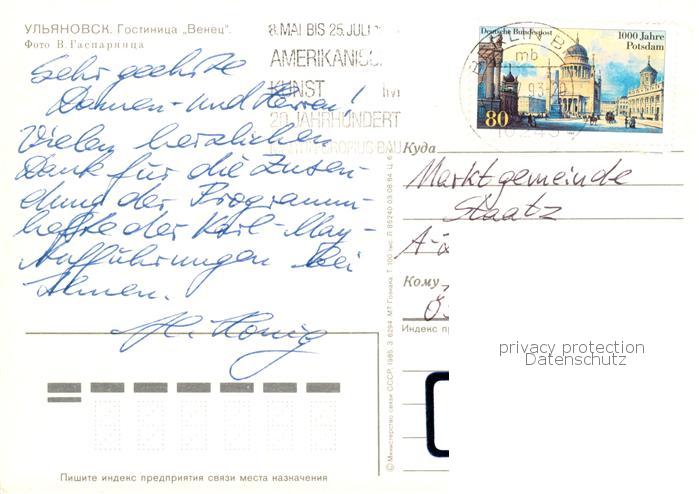 УЛЬЯНОВСК. Гостиница „Венец".
Фото В. Гаспарянца
Sehr geehrte
Damen- und Herren!
Vielen herzlichen
Dank für die Zusen-
dung der Programm-
hefte der Karl-May-
Aufführungen bei
Ihnen.
H. König
8. MAI BIS 25. JULI
AMERIKANISC
KUNST IM
20. JAHRHUNDERT
BERLIN
mb
Deutsche Bundespost
1000 Jahre
Potsdam
80
Куда
Marktgemeinde
Staatz
A-2
Кому
Ö
Индекс пр
privacy protection
Datenschutz
© Министерство связи СССР, 1985. З. 6294. МТ Гознака. Т. 100 тыс. Л 85240 03.08.84. Ц. 6
Пишите индекс предприятия связи места назначения